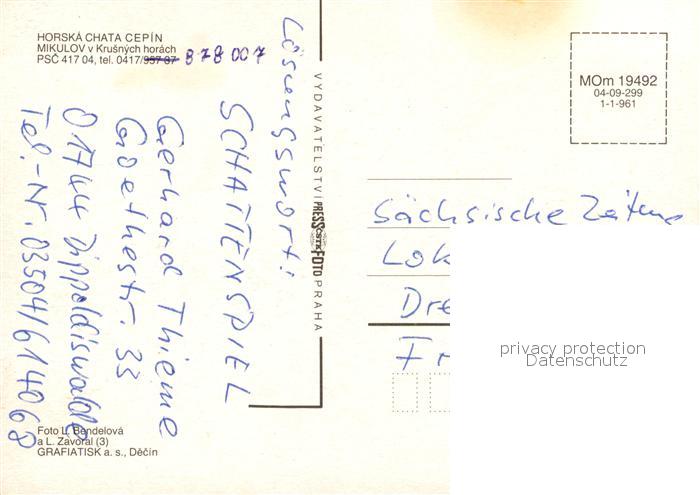 HORSKÁ CHATA CEPÍN
MIKULOV v Krušných horách
PSČ 417 04, tel. 0417/957 37 878 007
Lösungswort:
SCHATTENSPIEL
Gerhard Thieme
Goethestr. 33
01744 Dippoldiswalde
Tel.-Nr. 03504/614068
Foto L. Bendelová
a L. Zavoral (3)
GRAFIATISK a. s., Děčín
VYDAVATELSTVÍ PRESSFOTO PRAHA
MOm 19492
04-09-299
1-1-961
Sächsische Zeitung
Lok
Dre
Fr
privacy protection
Datenschutz